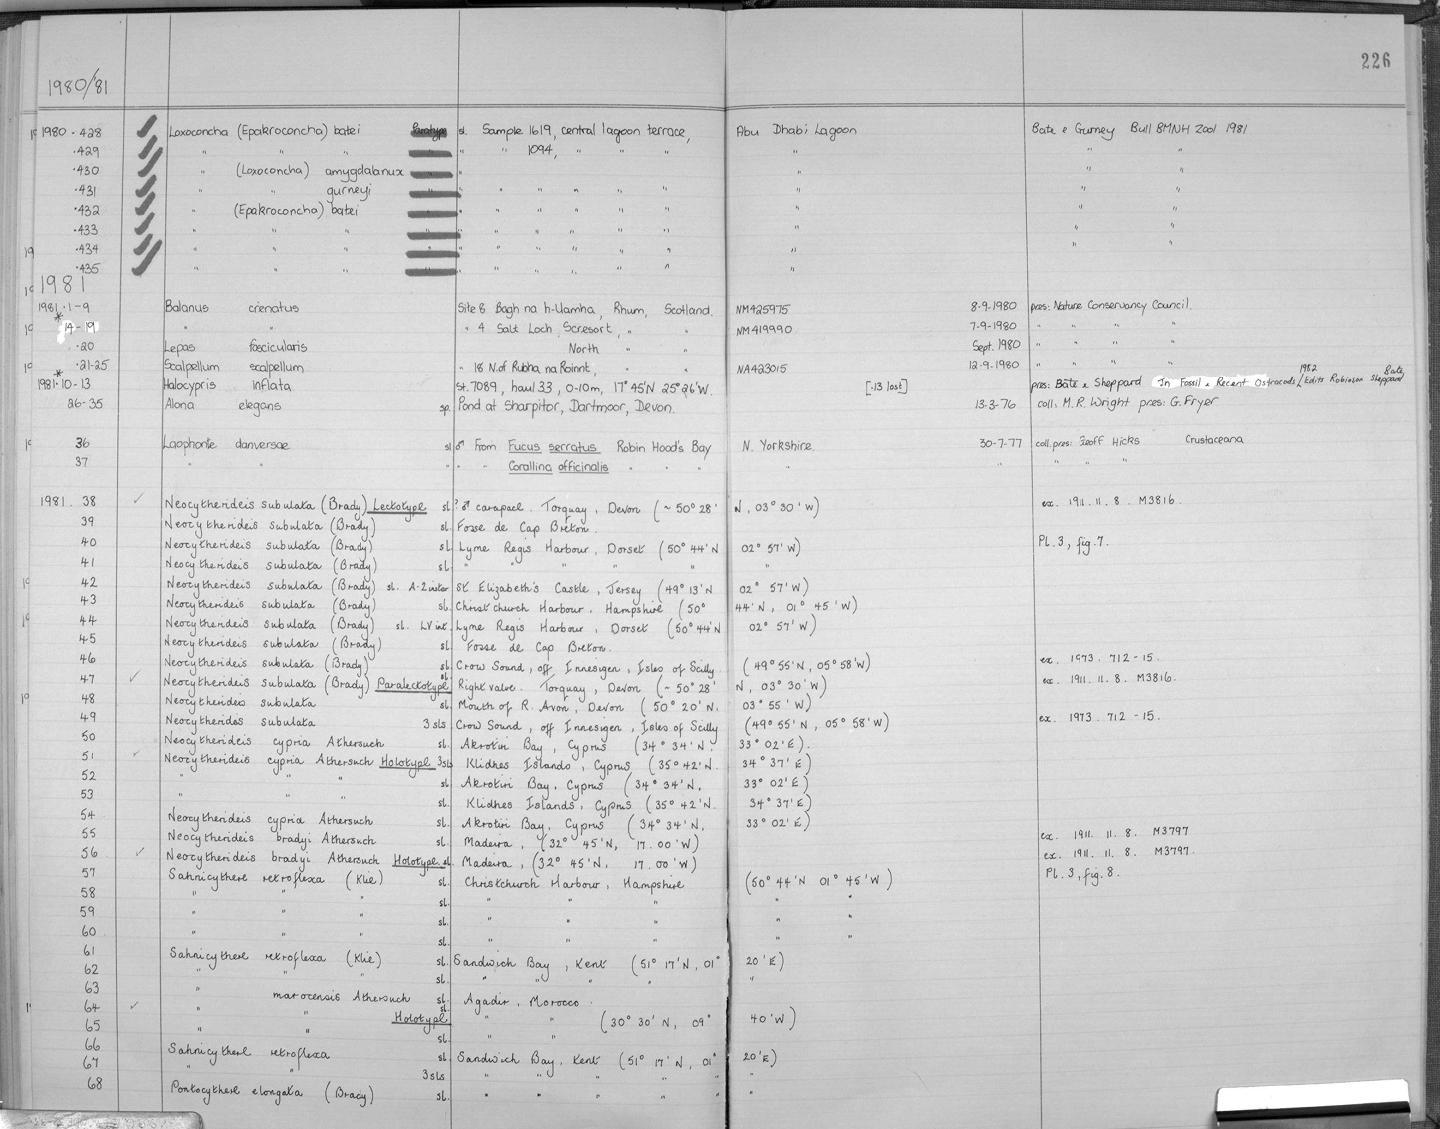 226
1980/81
1980 · 428 Loxoconcha (Epakroconcha) batei Paratype sl. Sample 1619, central lagoon terrace, Abu Dhabi Lagoon Bate & Gurney Bull BMNH Zool 1981
·429 " " " " " 1094, " " " " " "
·430 " (Loxoconcha) amygdalanux " " " "
·431 " " gurneyi " " " " " " " " "
·432 " (Epakroconcha) batei " " " " " " " " "
·433 " " " " " " " " " " " "
·434 " " " " " " " " " " " "
·435 " " " " " " " " " "
1981
1981 ·1-9 Balanus crenatus Site 8 Bagh na h-Uamha, Rhum, Scotland. NM425975 8-9-1980 pres: Nature Conservancy Council.
* 14-19 " " " 4 Salt Loch, Scresort, " " NM419990 7-9-1980 " " " "
·20 Lepas fascicularis North " " Sept. 1980 " " " "
·21-25 Scalpellum scalpellum " 18 N. of Rubha na Roinnt, " " NA423015 12-9-1980 " " " "
* 1981·10-13 Halocypris inflata St. 7089, haul 33, 0-10m, 17°45'N 25°26'W. [·13 lost] pres: Bate & Sheppard In Fossil & Recent Ostracods 1982 / Edits Robinson Bate, Sheppard
26-35 Alona elegans sp. Pond at Sharpitor, Dartmoor, Devon. 13-3-76 coll. M.R. Wright pres: G. Fryer
36 Laophonte danversae sl ♂ From Fucus serratus Robin Hood's Bay N. Yorkshire. 30-7-77 coll. pres: Geoff Hicks Crustaceana
37 " " " " " Corallina officinalis " " " " " " " "
1981. 38 ✓ Neocytherideis subulata (Brady) Lectotype sl ? ♂ carapace. Torquay, Devon (~ 50° 28' N, 03° 30' W) ex. 1911. 11. 8. M3816.
39 Neocytherideis subulata (Brady) sl. Fosse de Cap Breton.
40 Neocytherideis subulata (Brady) sl. Lyme Regis Harbour, Dorset (50° 44'N 02° 57' W) Pl. 3, fig. 7.
41 Neocytherideis subulata (Brady) sl " " " " " "
42 Neocytherideis subulata (Brady) sl. A-2 instar St. Elizabeth's Castle, Jersey (49° 13'N 02° 57' W)
43 Neocytherideis subulata (Brady) sl. Christchurch Harbour, Hampshire (50° 44' N, 01° 45' W)
44 Neocytherideis subulata (Brady) sl. LV int. Lyme Regis Harbour, Dorset (50° 44'N 02° 57' W)
45 Neocytherideis subulata (Brady) sl Fosse de Cap Breton.
46 Neocytherideis subulata (Brady) sl. Crow Sound, off Innesigen, Isles of Scilly (49° 55' N, 05° 58' W) ex. 1973. 712-15.
47 ✓ Neocytherideis subulata (Brady) Paralectotype sl Right valve. Torquay, Devon (~ 50° 28' N, 03° 30' W) ex. 1911. 11. 8. M3816.
48 Neocytherides subulata sl. Mouth of R. Avon, Devon (50° 20' N. 03° 55' W)
49 Neocytherides subulata 3 sls Crow Sound, off Innesigen, Isles of Scilly (49° 55' N, 05° 58' W) ex. 1973. 712-15.
50 Neocytherideis cypria Athersuch sl. Akrotiri Bay, Cyprus (34° 34' N. 33° 02' E).
51 ✓ Neocytherideis cypria Athersuch Holotype 3sls Klidhes Islands, Cyprus (35° 42' N. 34° 37' E)
52 " " " sl Akrotiri Bay, Cyprus (34° 34' N. 33° 02' E)
53 " " " sl. Klidhes Islands, Cyprus (35° 42' N. 34° 37' E)
54 Neocytherideis cypria Athersuch sl. Akrotiri Bay, Cyprus (34° 34' N. 33° 02' E)
55 Neocytherideis bradyi Athersuch sl. Madeira, (32° 45' N, 17. 00' W) ex. 1911. 11. 8. M3797
56 ✓ Neocytherideis bradyi Athersuch Holotype sl Madeira, (32° 45' N. 17. 00' W) ex. 1911. 11. 8. M3797.
57 Sahnicythere retroflexa (Klie) sl. Christchurch Harbour, Hampshire (50° 44' N 01° 45' W) Pl. 3, fig. 8.
58 " " " sl. " " " " "
59 " " " sl. " " " " "
60 " " " sl. " " " " "
61 Sahnicythere retroflexa (Klie) sl. Sandwich Bay, Kent (51° 17' N, 01° 20' E)
62 " " " sl. " " " " "
63 " marocensis Athersuch sl. Agadir, Morocco.
64 ✓ " " Holotype sl. " " (30° 30' N, 09° 40' W)
65 " " sl. " "
66 Sahnicythere retroflexa sl. Sandwich Bay, Kent (51° 17' N, 01° 20' E)
67 " " 3 sls " " " " " "
68 Pontocythere elongata (Brady) sl. " " " " " "